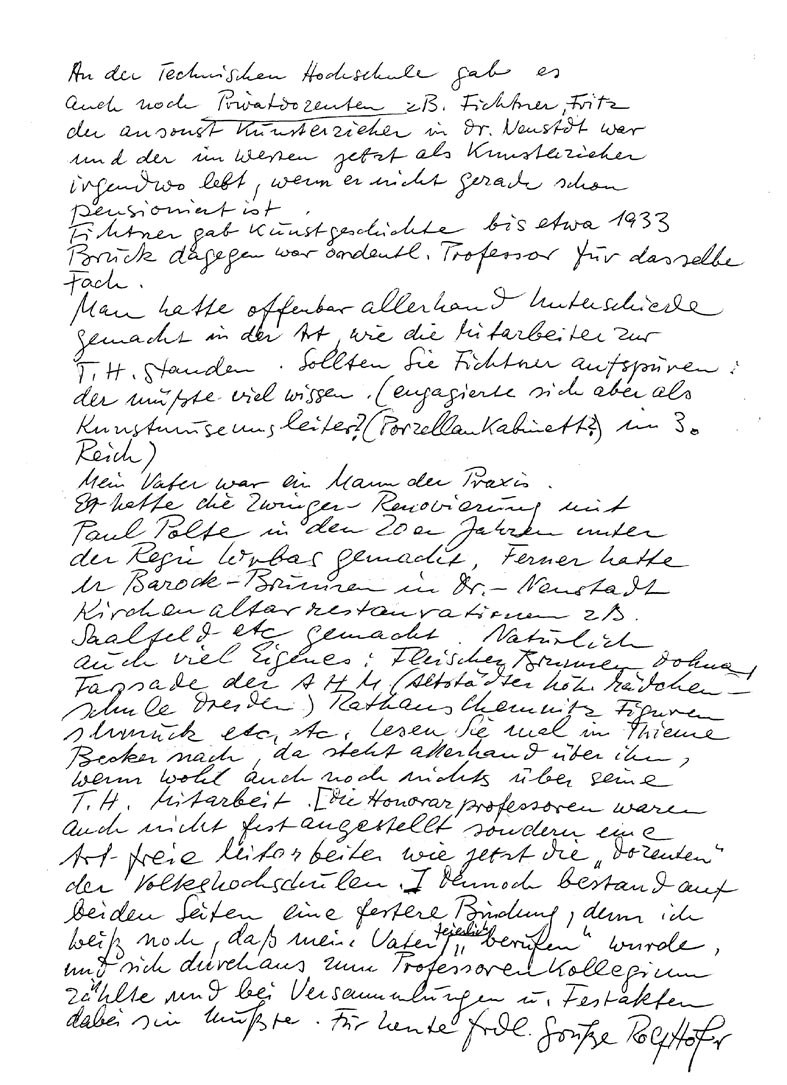 An der Technischen Hochschule gab es
auch noch Privatdozenten zB. Fichtner, Fritz
der ansonst Kunsterzieher in Dr. Neustdt war
und der im Westen jetzt als Kunsterzieher
irgendwo lebt, wenn er nicht gerade schon
pensioniert ist.
Fichtner gab Kunstgeschichte bis etwa 1933
Bruck dagegen war ordentl. Professor für dasselbe
Fach.
Man hatte offenbar allerhand Unterschiede
gemacht in der Art, wie die Mitarbeiter zur
T.H. standen. Sollten Sie Fichtner aufspüren:
der müßte viel wissen. (engagierte sich aber als
Kunstmuseumsleiter? (Porzellan Kabinett?) im 3.
Reich)
Mein Vater war ein Mann der Praxis.
Er hatte die Zwinger-Renovierung mit
Paul Polte in den 20er Jahren unter
der Regie Wrbas gemacht, Ferner hatte
er Barock-Brunnen in Dr.-Neustadt
Kirchenaltarrestaurationen zB.
Saalfeld etc gemacht. Natürlich
auch viel Eigenes: Fleischer Brunnen Dohna,
Fassade der AHM (Altstädter höh. Mädchen-
schule Dresden) Rathaus Chemnitz Figuren
schmuck etc, etc, Lesen Sie mal in Thieme
Becker nach, da steht allerhand über ihn,
wenn wohl auch noch nichts über seine
T.H. Mitarbeit. [Die Honorarprofessoren waren
auch nicht fest angestellt sondern eine
Art freie Mitarbeiter wie jetzt die „Dozenten"
der Volkshochschulen.] Dennoch bestand auf
beiden Seiten eine festere Bindung, denn ich
weiß noch, daß mein Vater feierlich „berufen" wurde,
und sich durchaus zum Professoren Kollegium
zählte und bei Versammlungen u. Festakten
dabei sein mußte. Für heute frdl. Grüße Rolf Hofer